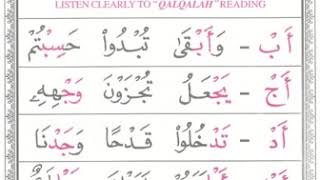 LISTEN CLEARLY TO "QALQALAH" READING
أَبْ - وَأَبْقَىٰ تُبْدُوا۟ حَسِبْتُمْ
أَجْ - يَجْعَلُ تُجْزَوْنَ وَجْهِهِۦ
أَدْ - تَدْخُلُوا۟ قَدْحًا وَجَدْنَا